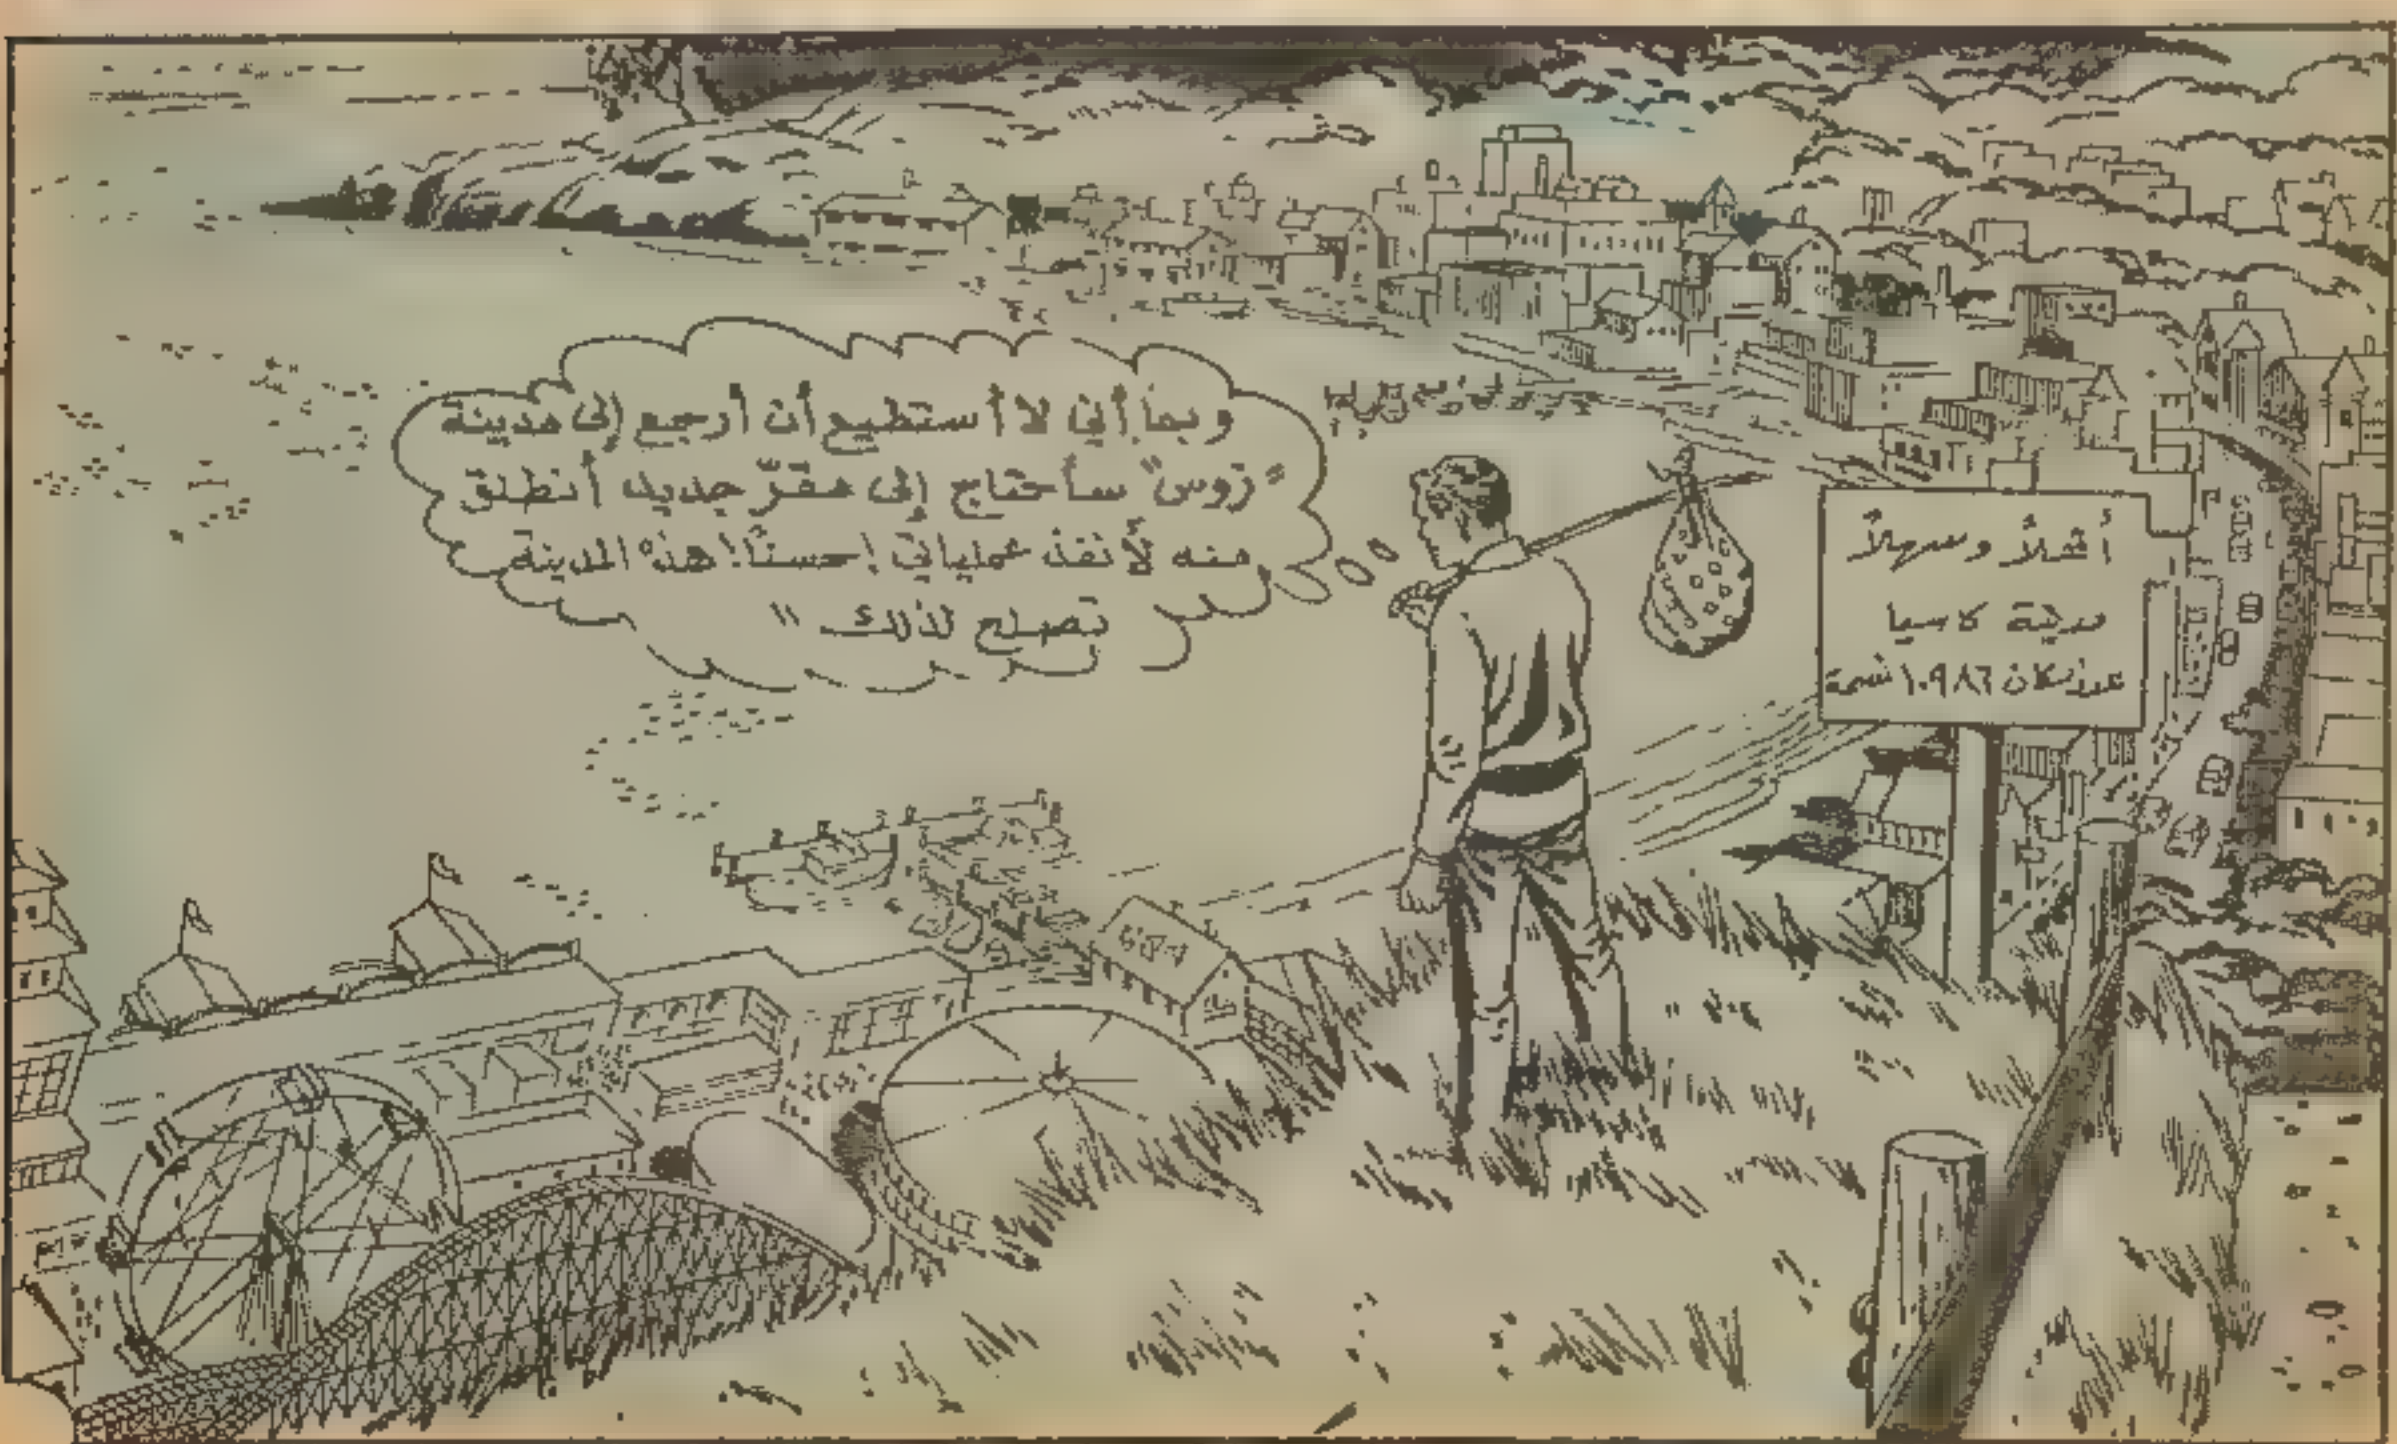 وبما أني لا أستطيع أن أرجع إلى مدينة
"زوس" سأحتاج إلى مقرّ جديد أنطلق
منه لأنفذ عملياتي! حسناً! هذه المدينة
تصلح لذلك "
أهلاً وسهلاً
مدينة كاسيا
عدد سكان ١٠٩٨٦ نسمة